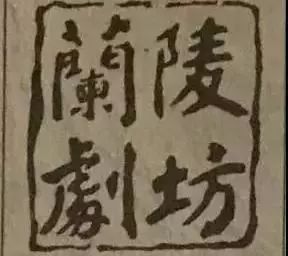 蘭陵
劇坊